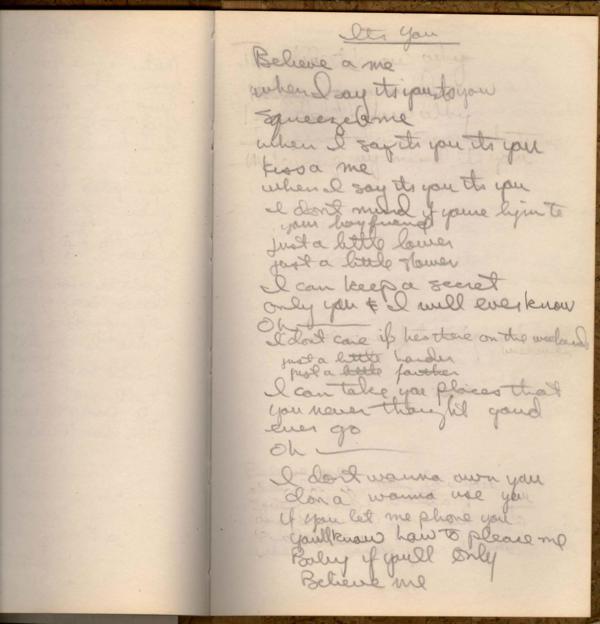 Its You
Believe a me
when I say its you its you
Squeeze a me
when I say its you its you
kiss a me
when I say its you its you
I don't mind if youre lyin to
your boyfriend
just a little lower
just a little slower
I can keep a secret
only you & I will ever know
Oh
I dont care if hes there on the weekend
just a little harder
just a little farther
I can take you places that
you never thought youd
ever go
Oh
I don't wanna own you
don a wanna use you
if you let me phone you
you'll know how to please me
Baby if you'll only
Believe me